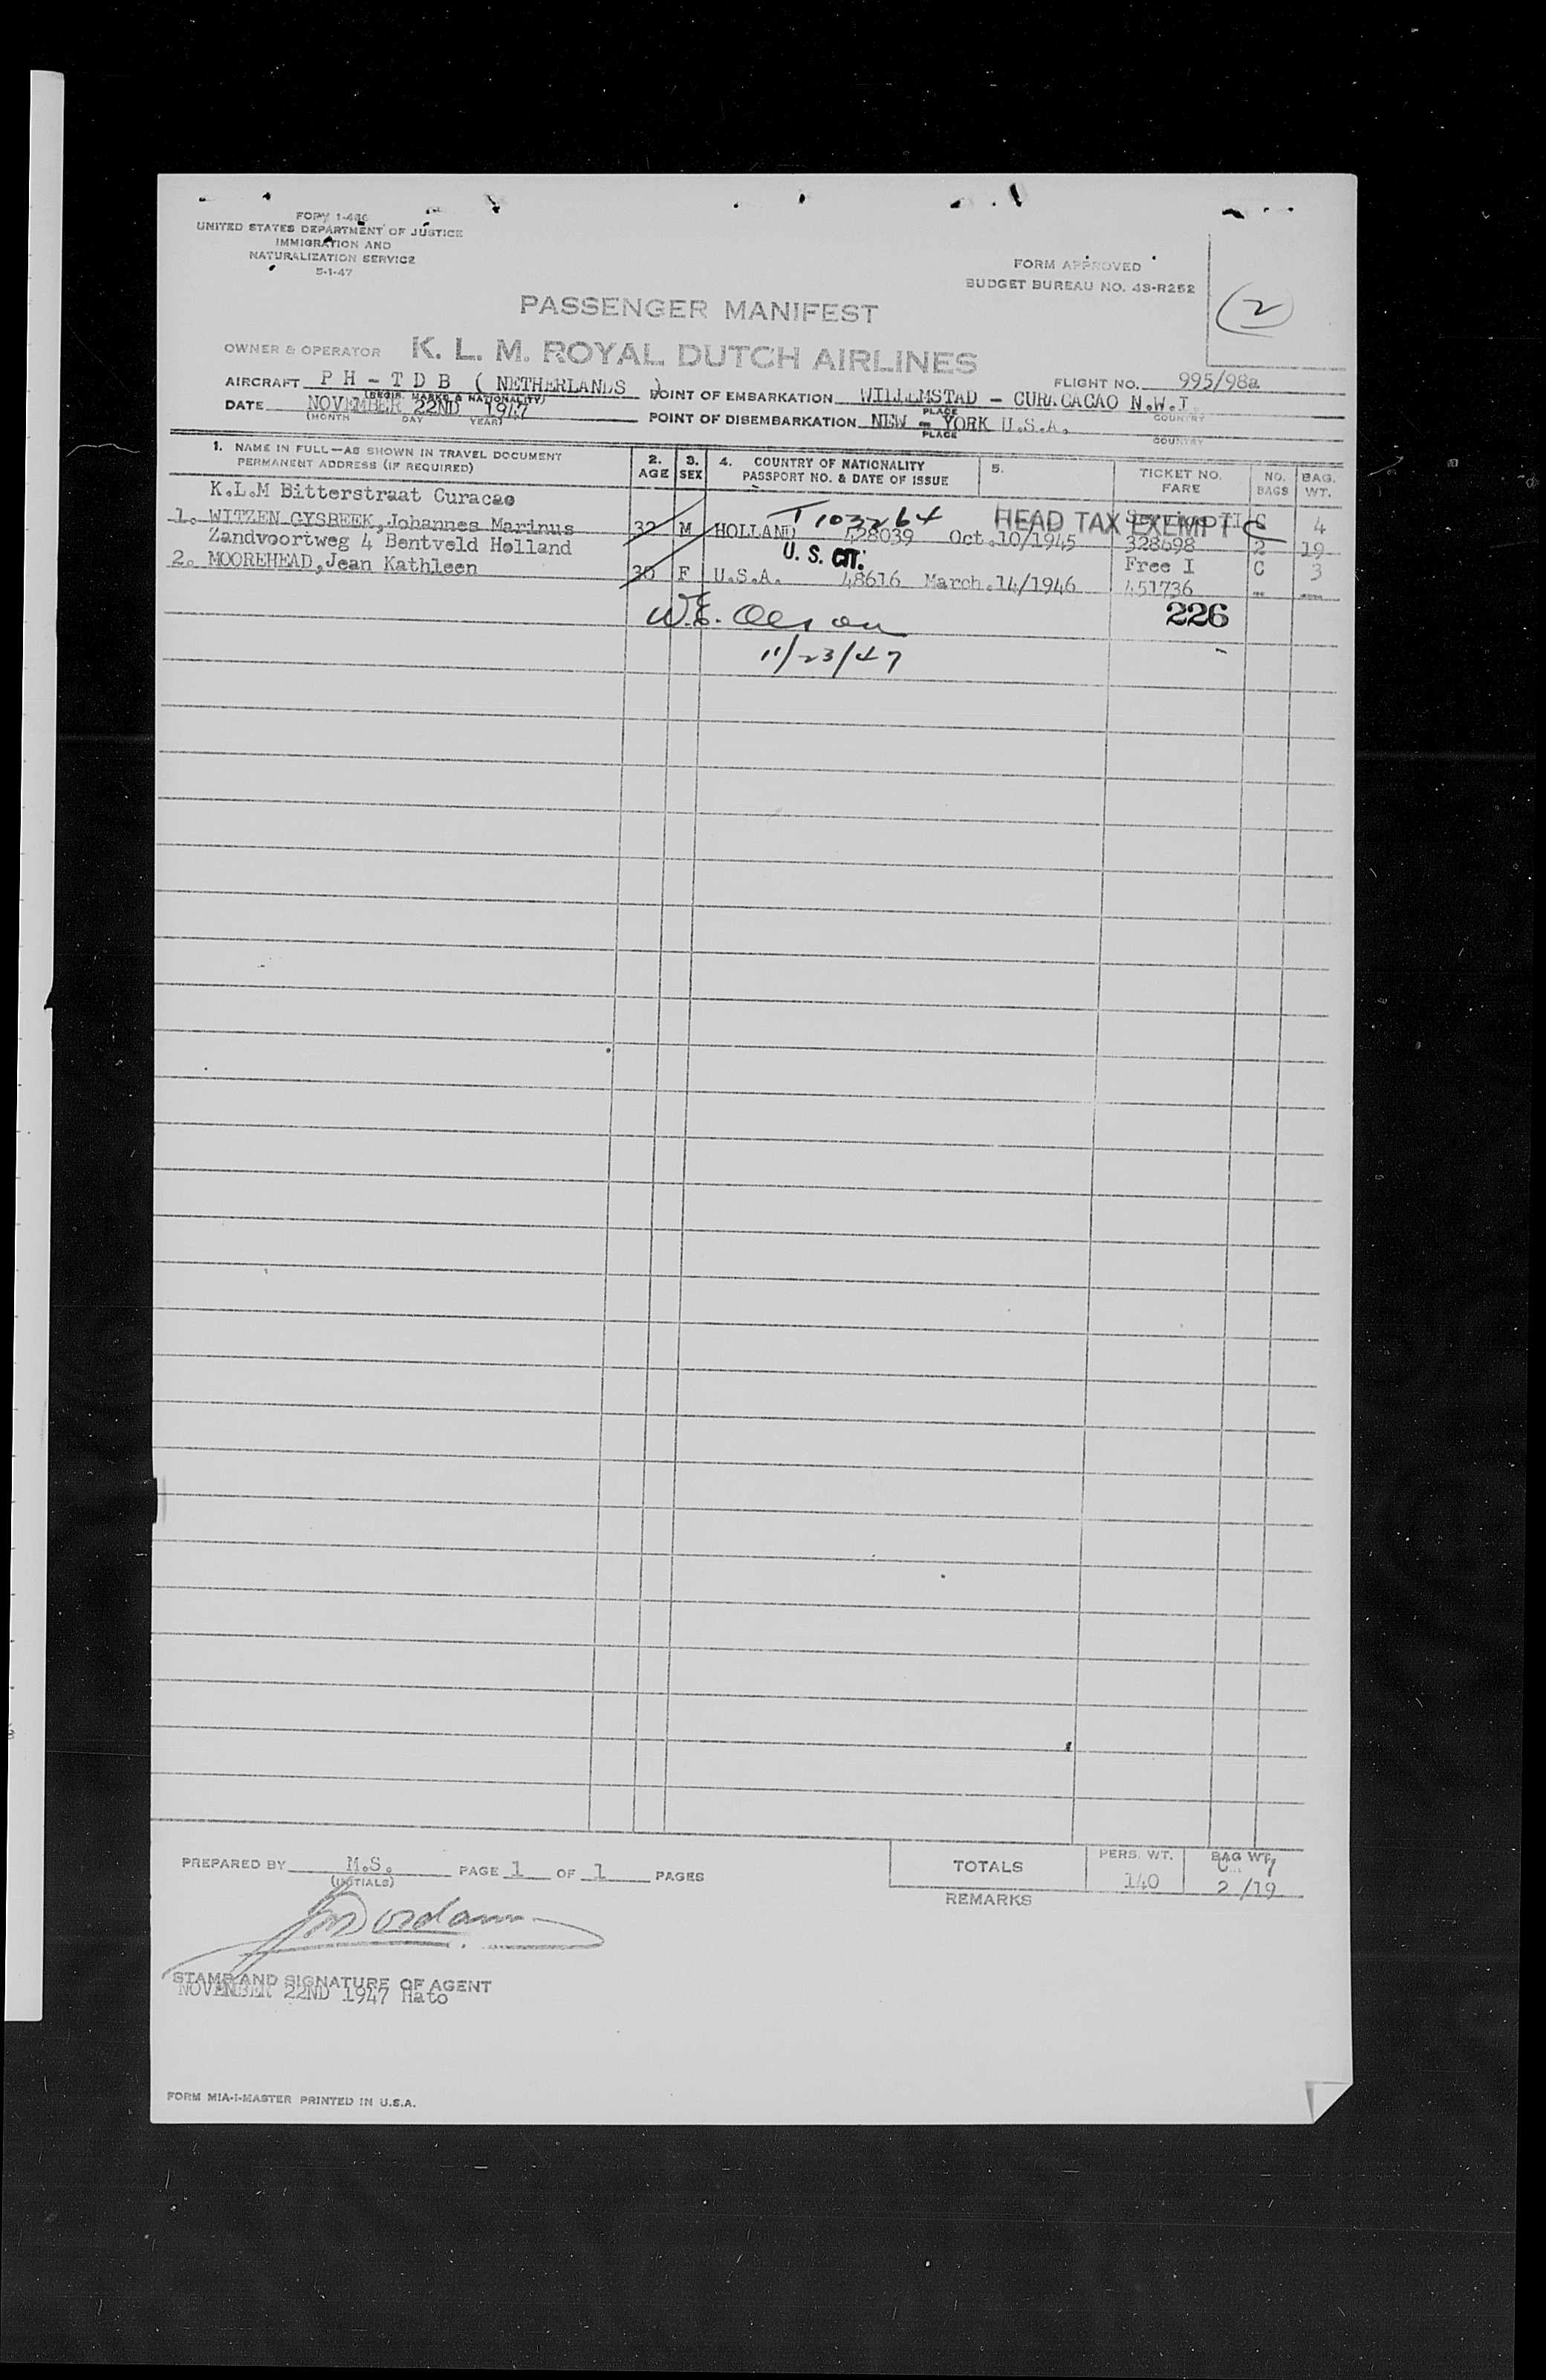 FORM I-466
UNITED STATES DEPARTMENT OF JUSTICE
IMMIGRATION AND
NATURALIZATION SERVICE
5-1-47
FORM APPROVED
BUDGET BUREAU NO. 43-R252
(2)
PASSENGER MANIFEST
OWNER & OPERATOR K. L. M. ROYAL DUTCH AIRLINES
AIRCRAFT P H - T D B ( NETHERLANDS ) POINT OF EMBARKATION WILLEMSTAD - CURACACAO N.W.I. FLIGHT NO. 995/98a
(REGIS. MARKS & NATIONALITY) PLACE COUNTRY
DATE NOVEMBER 22ND 1947 POINT OF DISEMBARKATION NEW - YORK U.S.A.
(MONTH DAY YEAR) PLACE COUNTRY
1. NAME IN FULL—AS SHOWN IN TRAVEL DOCUMENT 2. 3. 4. COUNTRY OF NATIONALITY 5. TICKET NO. NO. BAG.
PERMANENT ADDRESS (IF REQUIRED) AGE SEX PASSPORT NO. & DATE OF ISSUE FARE BAGS WT.
K.L.M Bitterstraat Curacao T1032264 HEAD TAX EXEMPT Service II C 4
1. WITZEN GYSBEEK, Johannes Marinus 32 M HOLLAND 428039 Oct.10/1945 328698 2 19
Zandvoortweg 4 Bentveld Holland U. S. CIT. Free I C 3
2. MOOREHEAD, Jean Kathleen 30 F U.S.A. 48616 March.14/1946 451736 - -
W.E. Olson 226
11/23/47
PREPARED BY M.S. PAGE 1 OF 1 PAGES TOTALS PERS. WT. 140 BAG WT. C 7
(INITIALS) 2 /19
REMARKS
STAMP AND SIGNATURE OF AGENT
NOVEMBER 22ND 1947 Hato
FORM MIA-I-MASTER PRINTED IN U.S.A.